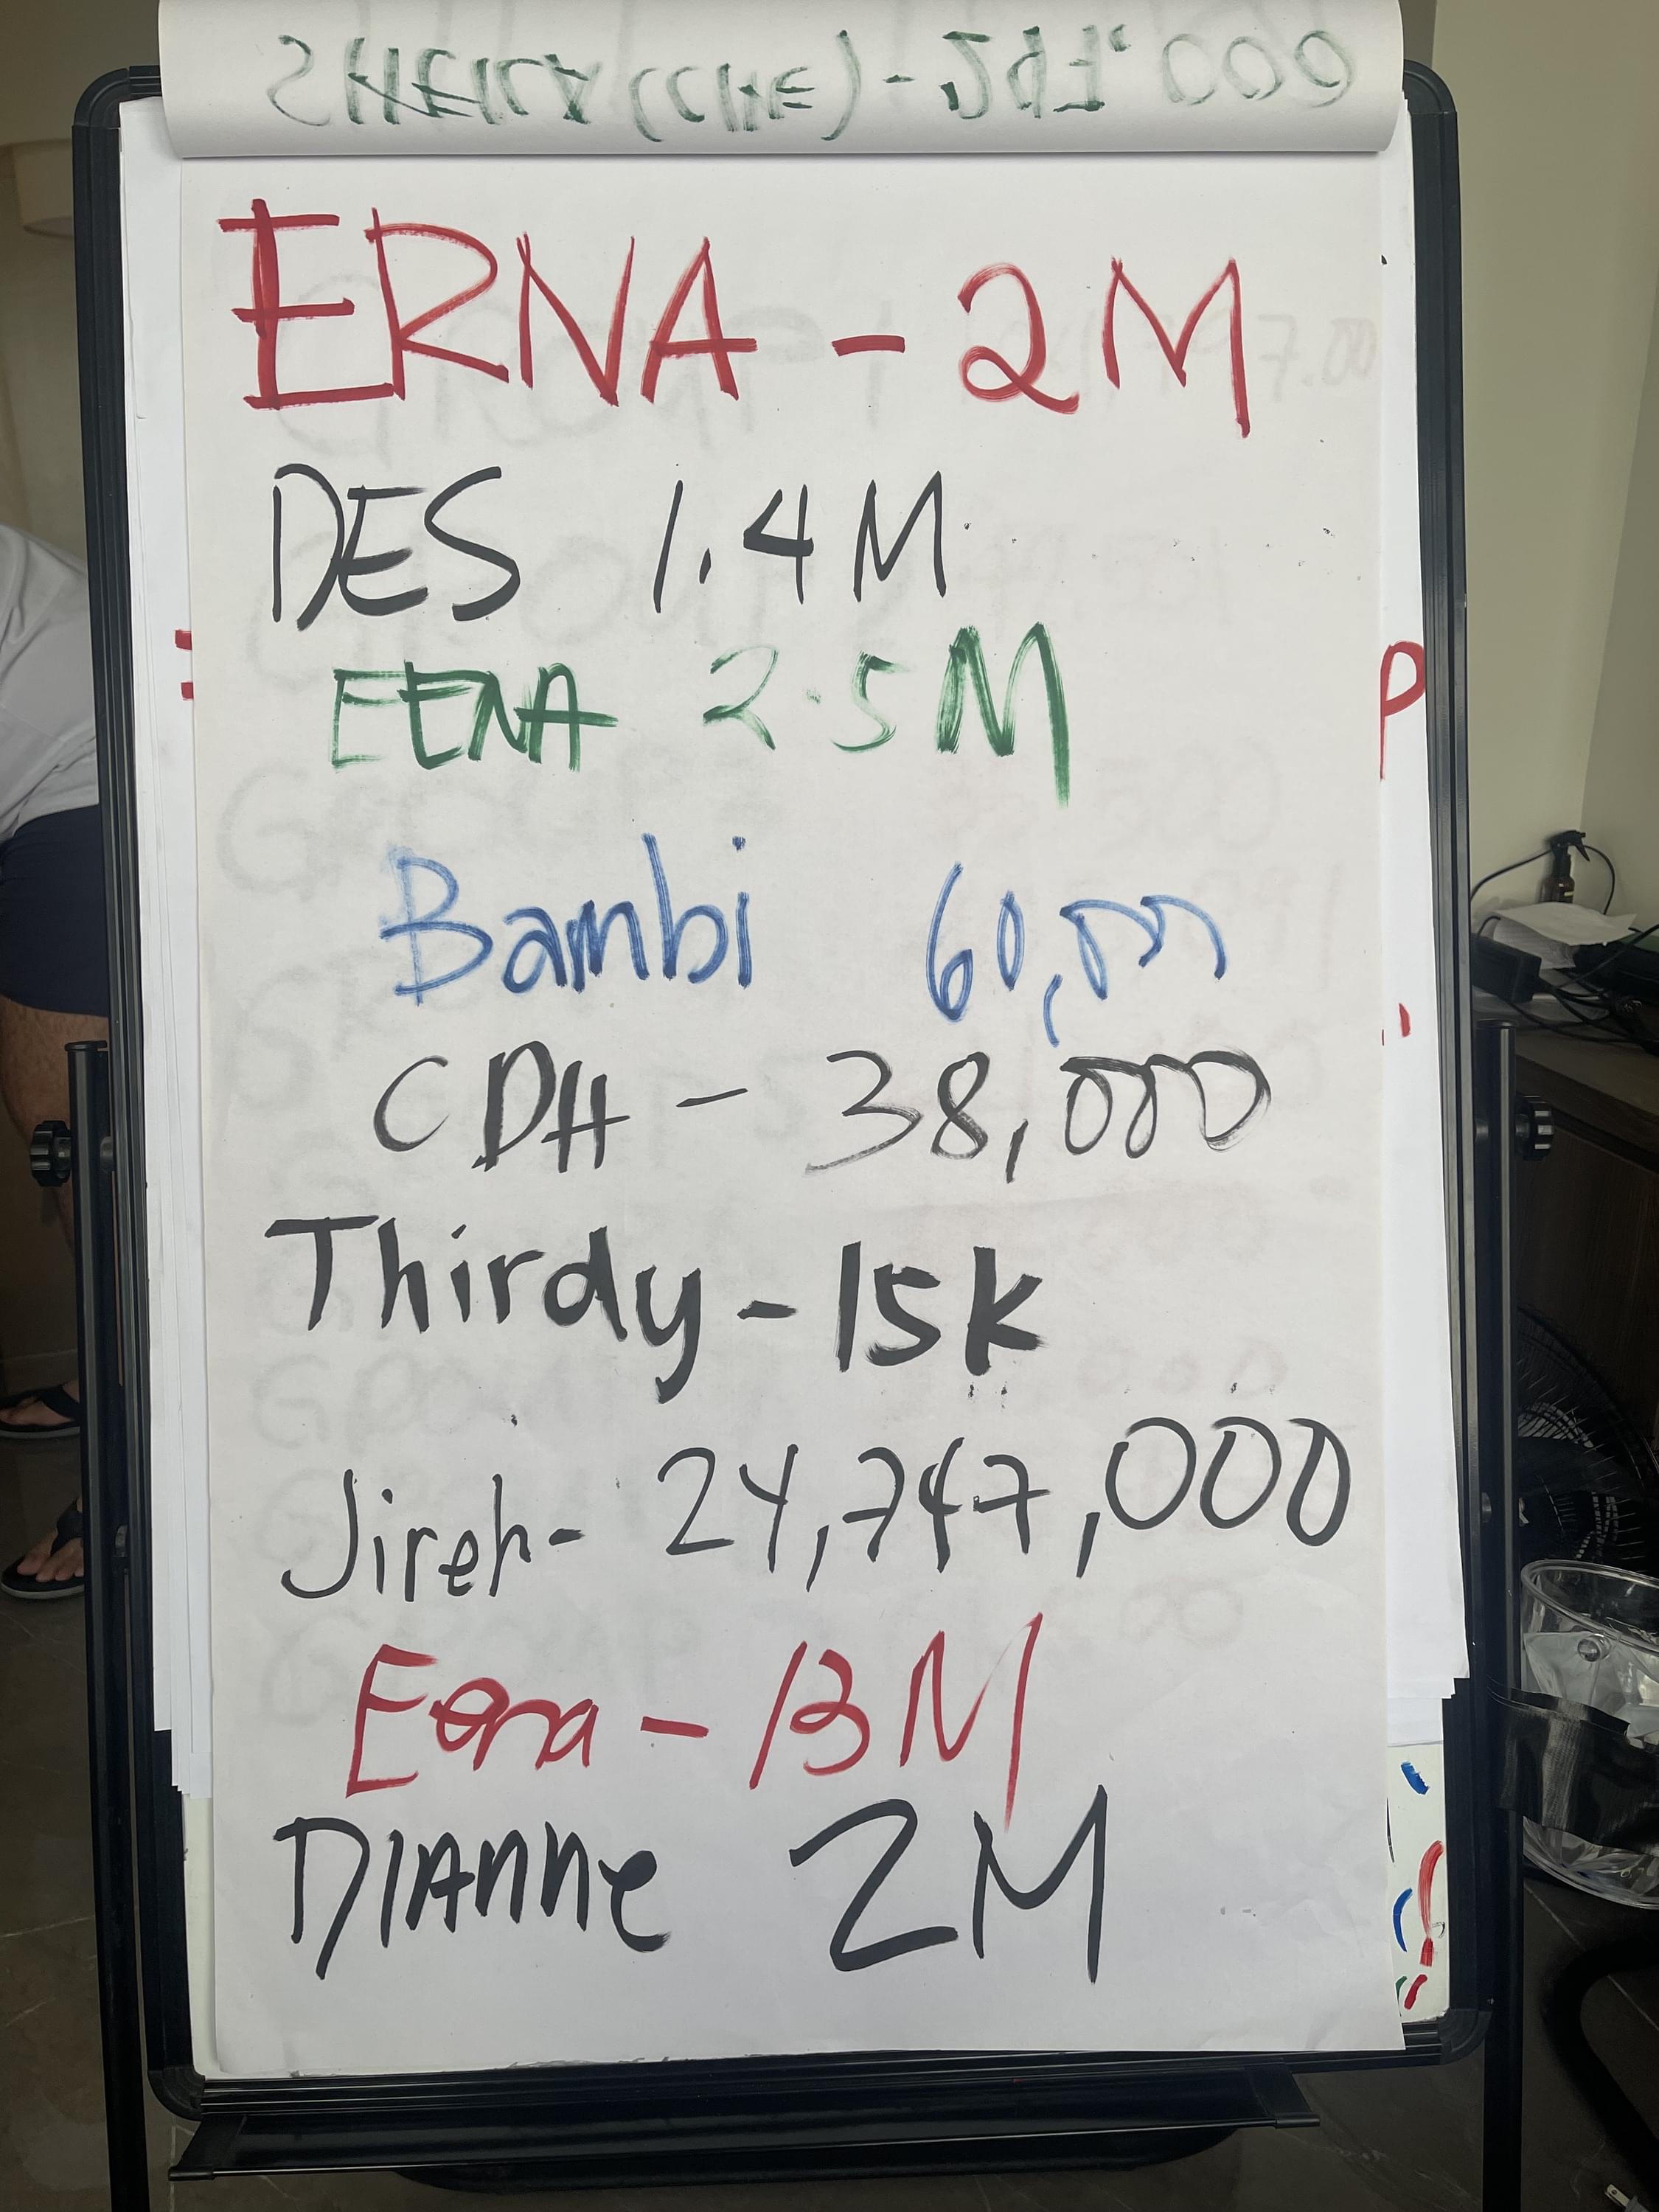 SHEILA (CHE) - 247,000
ERNA - 2M
DES 1.4M
EENA 2.5M
Bambi 60,000
CDH - 38,000
Thirdy - 15k
Jireh - 24,747,000
Eena - 13M
DIAnne 2M
P